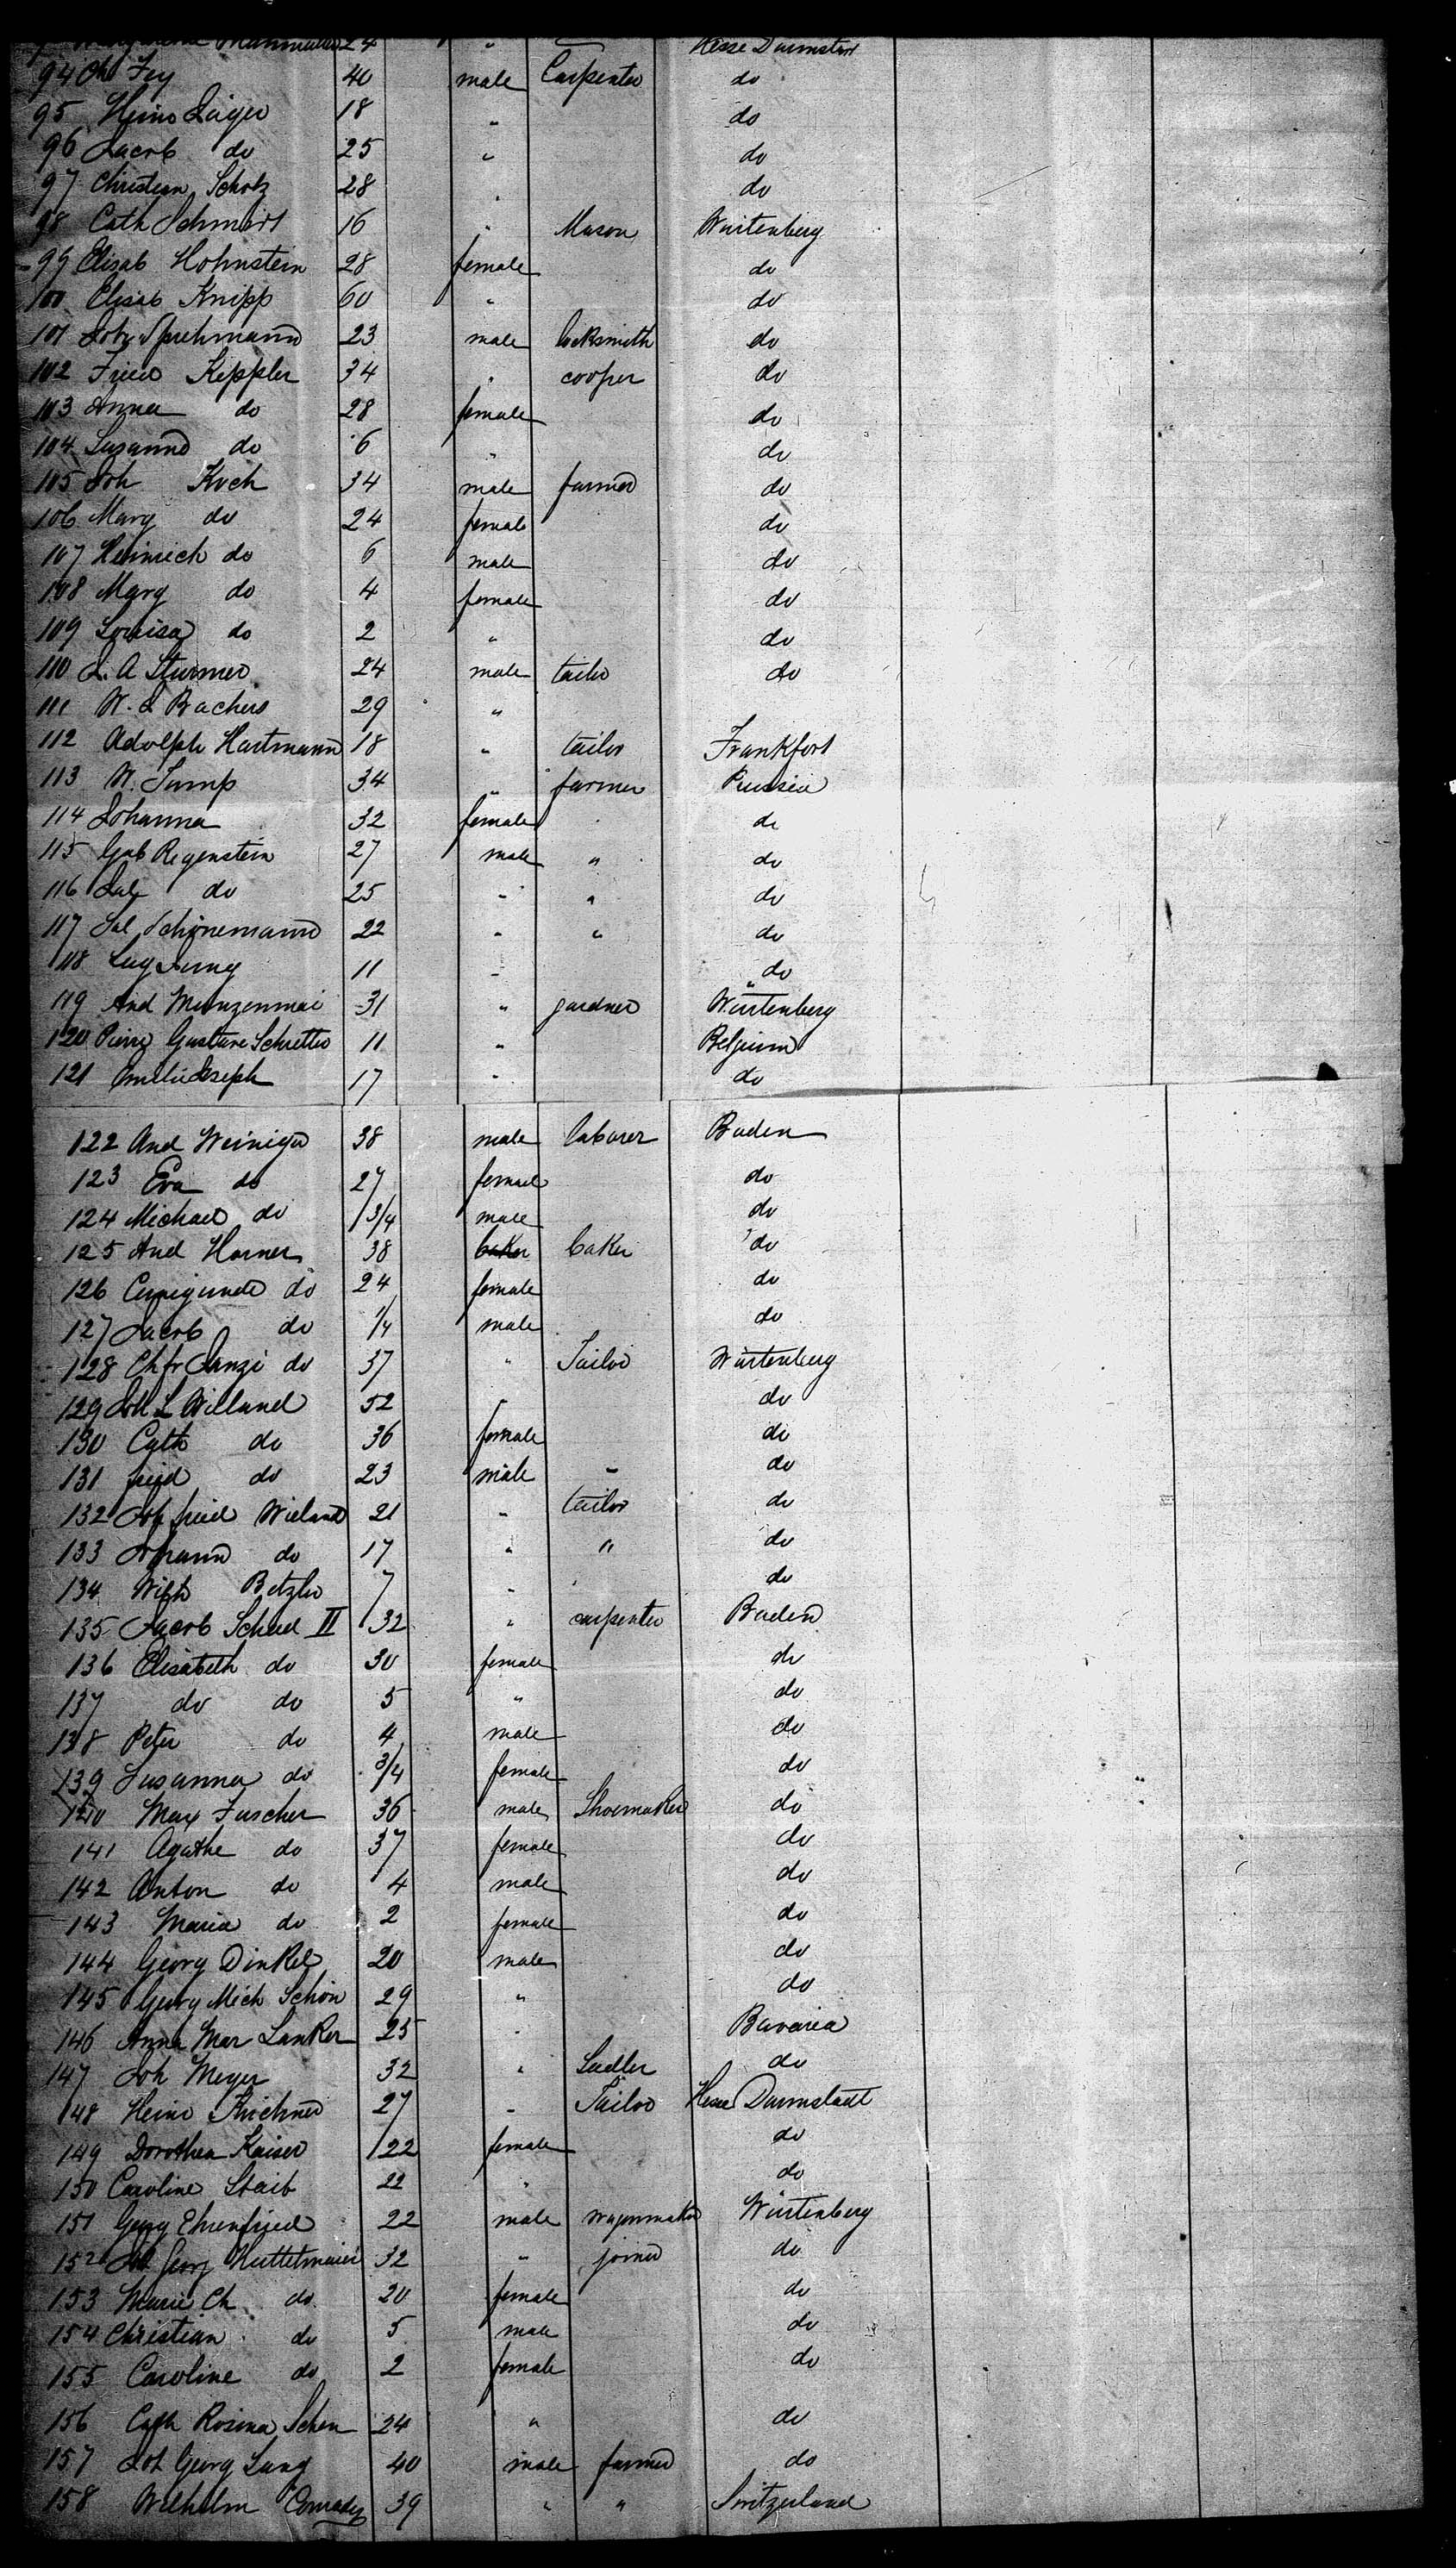 24 " Hesse Darmstadt
94 Ch Fey 40 male Carpenter do
95 Heinr Jäger 18 " do
96 Jacob do 25 " do
97 Christian Scholz 28 " do
98 Cath Schmidt 16 " Mason Würtenberg
99 Elisab Hohnstein 28 female do
100 Elisab Knipp 60 " do
101 Joh Spuhmann 23 male locksmith do
102 Fried Keppler 34 " cooper do
103 Anna do 28 female do
104 Susanna do 6 " do
105 Joh Koch 34 male farmer do
106 Marg do 24 female do
107 Heinrich do 6 male do
108 Marg do 4 female do
109 Louisa do 2 " do
110 J. A Sturmer 24 male tailor do
111 W. J Bachers 29 "
112 Adolph Hartmann 18 " tailor Frankfort
113 W. Sump 34 " farmer Prussia
114 Johanna 32 female do
115 Gab Regenstein 27 male " do
116 Sal do 25 " " do
117 Sal Schönemann 22 " " do
118 11 " do
119 And Munzenmai 31 " gardner Würtenberg
120 Pierre Gustave Schretter 11 " Belgium
121 Joseph 17 " do
122 And Weiniger 38 male laborer Baden
123 Eva do 27 female do
124 Michael do 1 3/4 male do
125 And Horner 38 baker baker do
126 Cunigunde do 24 female do
127 Jacob do 1/4 male do
128 Chfr do 37 " Tailor Würtenberg
129 Joh L Willand 52 " do
130 Cath do 36 female do
131 fried do 23 male " do
132 Joh fried Wieland 21 " tailor do
133 Johann do 17 " " do
134 Wilh Betzler 7 " do
135 Jacob Scheid II 32 " carpenter Baden
136 Elisabeth do 30 female do
137 do do 5 " do
138 Peter do 4 male do
139 Susanna do 3/4 female do
140 Max Fuscher 36 male Shoemaker do
141 Agathe do 37 female do
142 Anton do 4 male do
143 Maria do 2 female do
144 Georg Dinkel 20 male do
145 Georg Mich Schön 29 " do
146 Anna Mar Lanker 25 " Bavaria
147 Joh Meyer 32 " Sadler do
148 Heinr Kirchner 27 " Tailor Hesse Darmstadt
149 Dorothea Kaiser 22 female do
150 Caroline Staib 22 " do
151 Georg Ehrenfried 22 male wagenmaker Würtenberg
152 Joh Georg Huttelmaier 32 " joiner do
153 Marie Ch do 20 female do
154 Christian do 5 male do
155 Caroline do 2 female do
156 Cath Rosina Schen 24 " do
157 Joh Georg Lang 40 male farmer do
158 Wilhelm Conrady 39 " " Switzerland